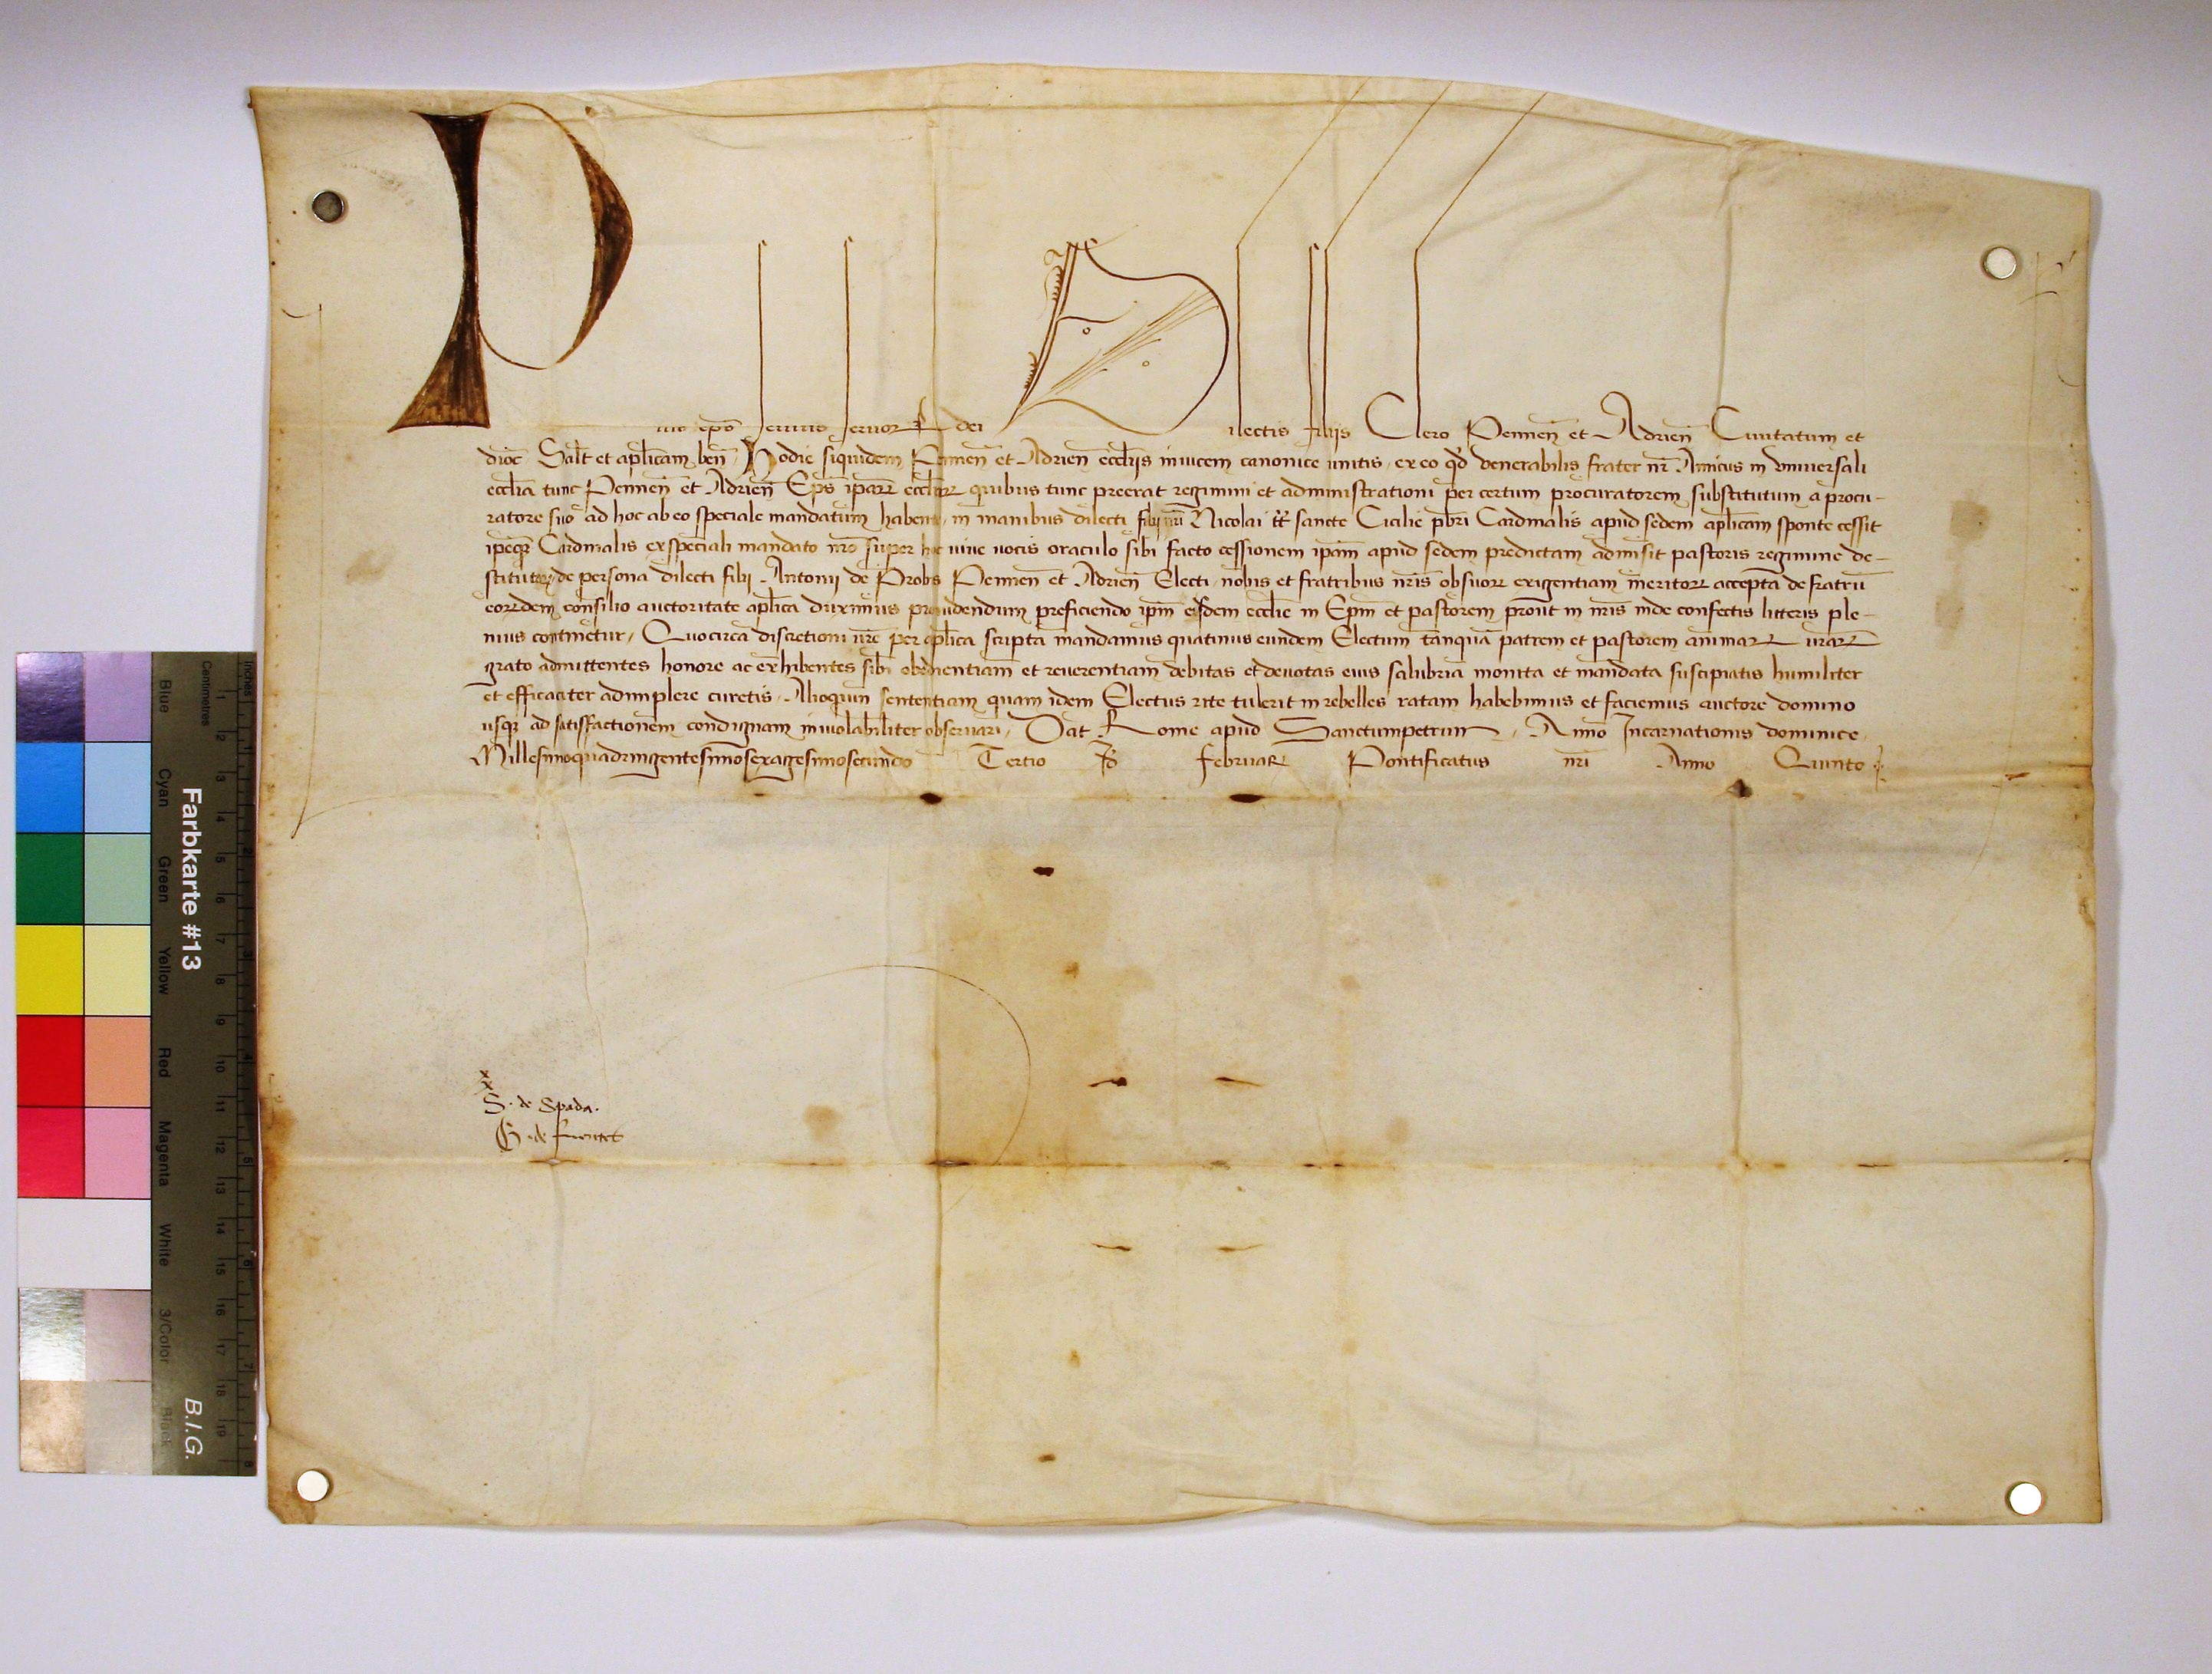 Pius eps̄ servus servoꝝ dei Dilectis filijs Clero Pennen̄ et Adrien̄ Civitatum et
dioc̄ Salt̄ et aplicam ben̄. Hodie siquidem Pennen̄ et Adrien̄ eccliis invicem canonice unitis, ex eo qd̄ venerabilis frater nr̄ Amicus in universali
ecclia tunc Pennen̄ et Adrien̄ Eps̄ ipaꝝ eccliaꝝ quibus tunc preerat regimini et administrationi per certum procuratorem substitutum a procu-
ratore suo ad hoc ab eo speciale mandatum habente, in manibus dilecti filii nri Nicolai tt̄ sancte Cicilie pbri Cardinalis apud sedem aplicam sponte cessit
ipeqꝫ Cardinalis ex speciali mandato nro super hoc vive vocis oraculo sibi facto cessionem ipam apud sedem predictam admisit pastoris regimine de-
stitutis, de persona dilecti filii Antonij de Probis Pennen̄ et Adrien̄ Electi, nobis et fratribus nris ob suoꝝ exigentiam meritoꝝ accepta de fratrū
eoꝝdem consilio auctoritate aplica duximus providendum preficiendo ipm eisdem ecclie in Epm et pastorem prout in nris inde confectis litteris ple-
nius continetur, Quocirca discretioni vre per aplica scripta mandamus quatinus eundem Electum tanquā patrem et pastorem animaꝝ vraꝝ
grato admittentes honore ac exhibentes sibi obedientiam et reverentiam debitas et devotas eius salubria monita et mandata suscipiatis humiliter
et efficaciter adimplere curetis. Alioquin sententiam quam idem Electus rite tulerit in rebelles ratam habebimus et faciemus auctore domino
usqꝫ ad satisfactionem condignam inviolabiliter observari. Dat Rome apud Sanctumpetrum, Anno Incarnationis dominice
Millesimoquadringentesimosexagesimosecundo Tertio Id Februaꝝ Pontificatus nri Anno Quinto
xx
S. de Spada.
G. de fuentes
Farbkarte #13
B.I.G.
Inches
Centimetres
Blue Cyan Green Yellow Red Magenta White 3/Color Black
1 2 3 4 5 6 7 8 9 10 11 12 13 14 15 16 17 18 19